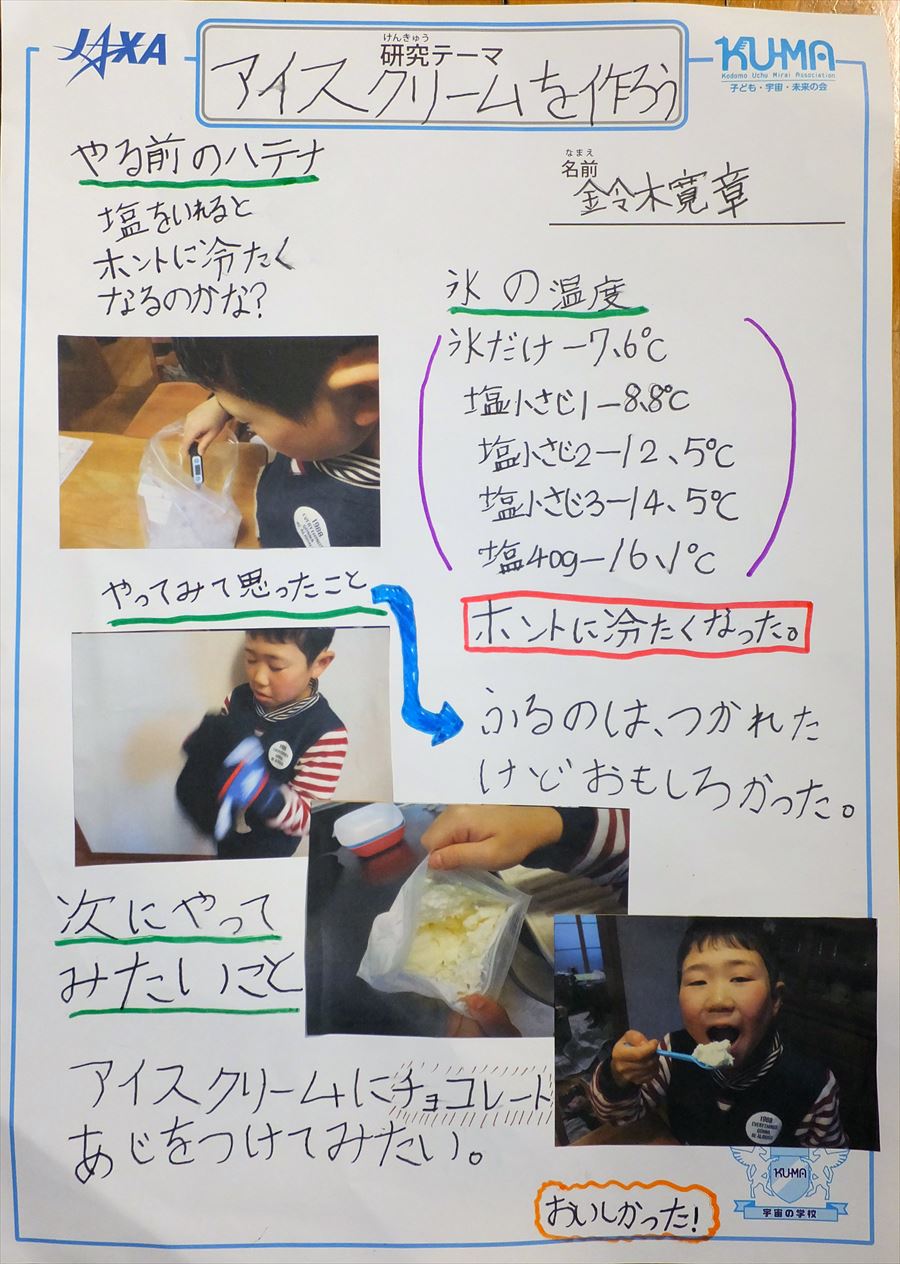 JAXA
けんきゅう
研究テーマ
アイスクリームを作ろう
KU-MA
Kodomo Uchu Mirai Association
子ども・宇宙・未来の会
やる前のハテナ
なまえ
名前
鈴木寛章
塩をいれると
ホントに冷たく
なるのかな?
氷の温度
氷だけ-7、6℃
塩小さじ1-8、8℃
塩小さじ2-12、5℃
塩小さじ3-14、5℃
塩40g-16、1℃
ホントに冷たくなった。
やってみて思ったこと
ふるのは、つかれた
けどおもしろかった。
次にやって
みたいこと
アイスクリームにチョコレート
あじをつけてみたい。
おいしかった!
1988
EVERYTHING'S
GONNA
BE ALRIGHT
KU-MA
宇宙の学校